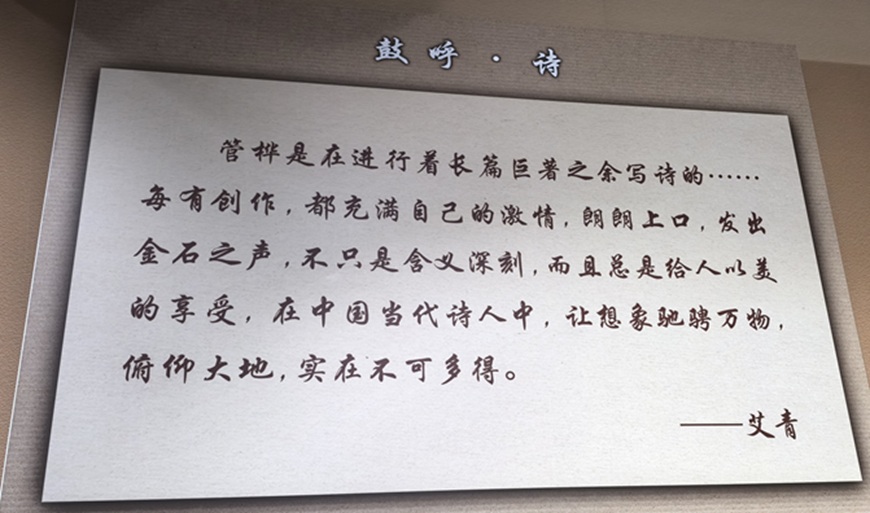 鼓呼·诗
管桦是在进行着长篇巨著之余写诗的……
每有创作，都充满自己的激情，朗朗上口，发出
金石之声，不只是含义深刻，而且总是给人以美
的享受，在中国当代诗人中，让想象驰骋万物，
俯仰大地，实在不可多得。
——艾青